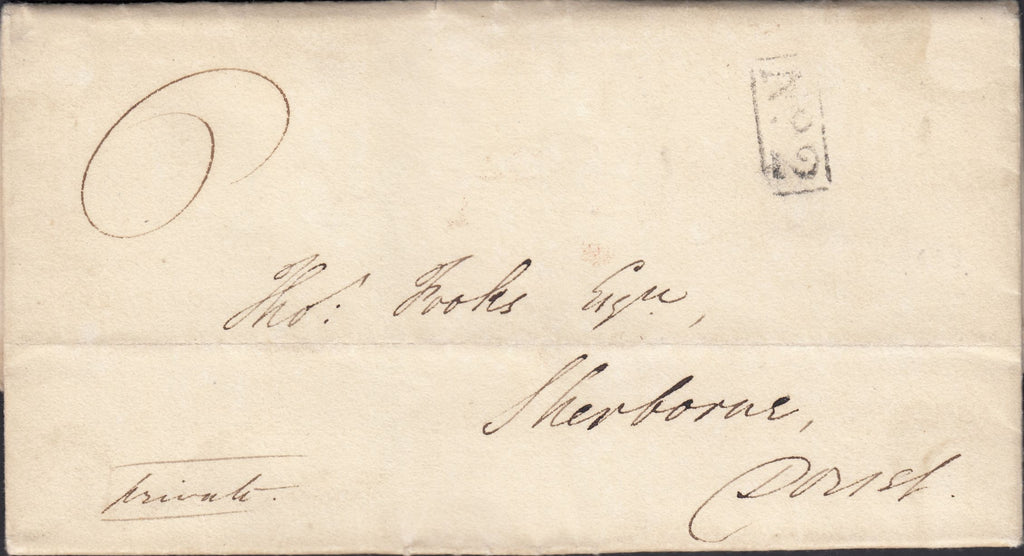 6
No. 2
Thos. Fooks Esqre,
Sherborne,
Dorset.
private.